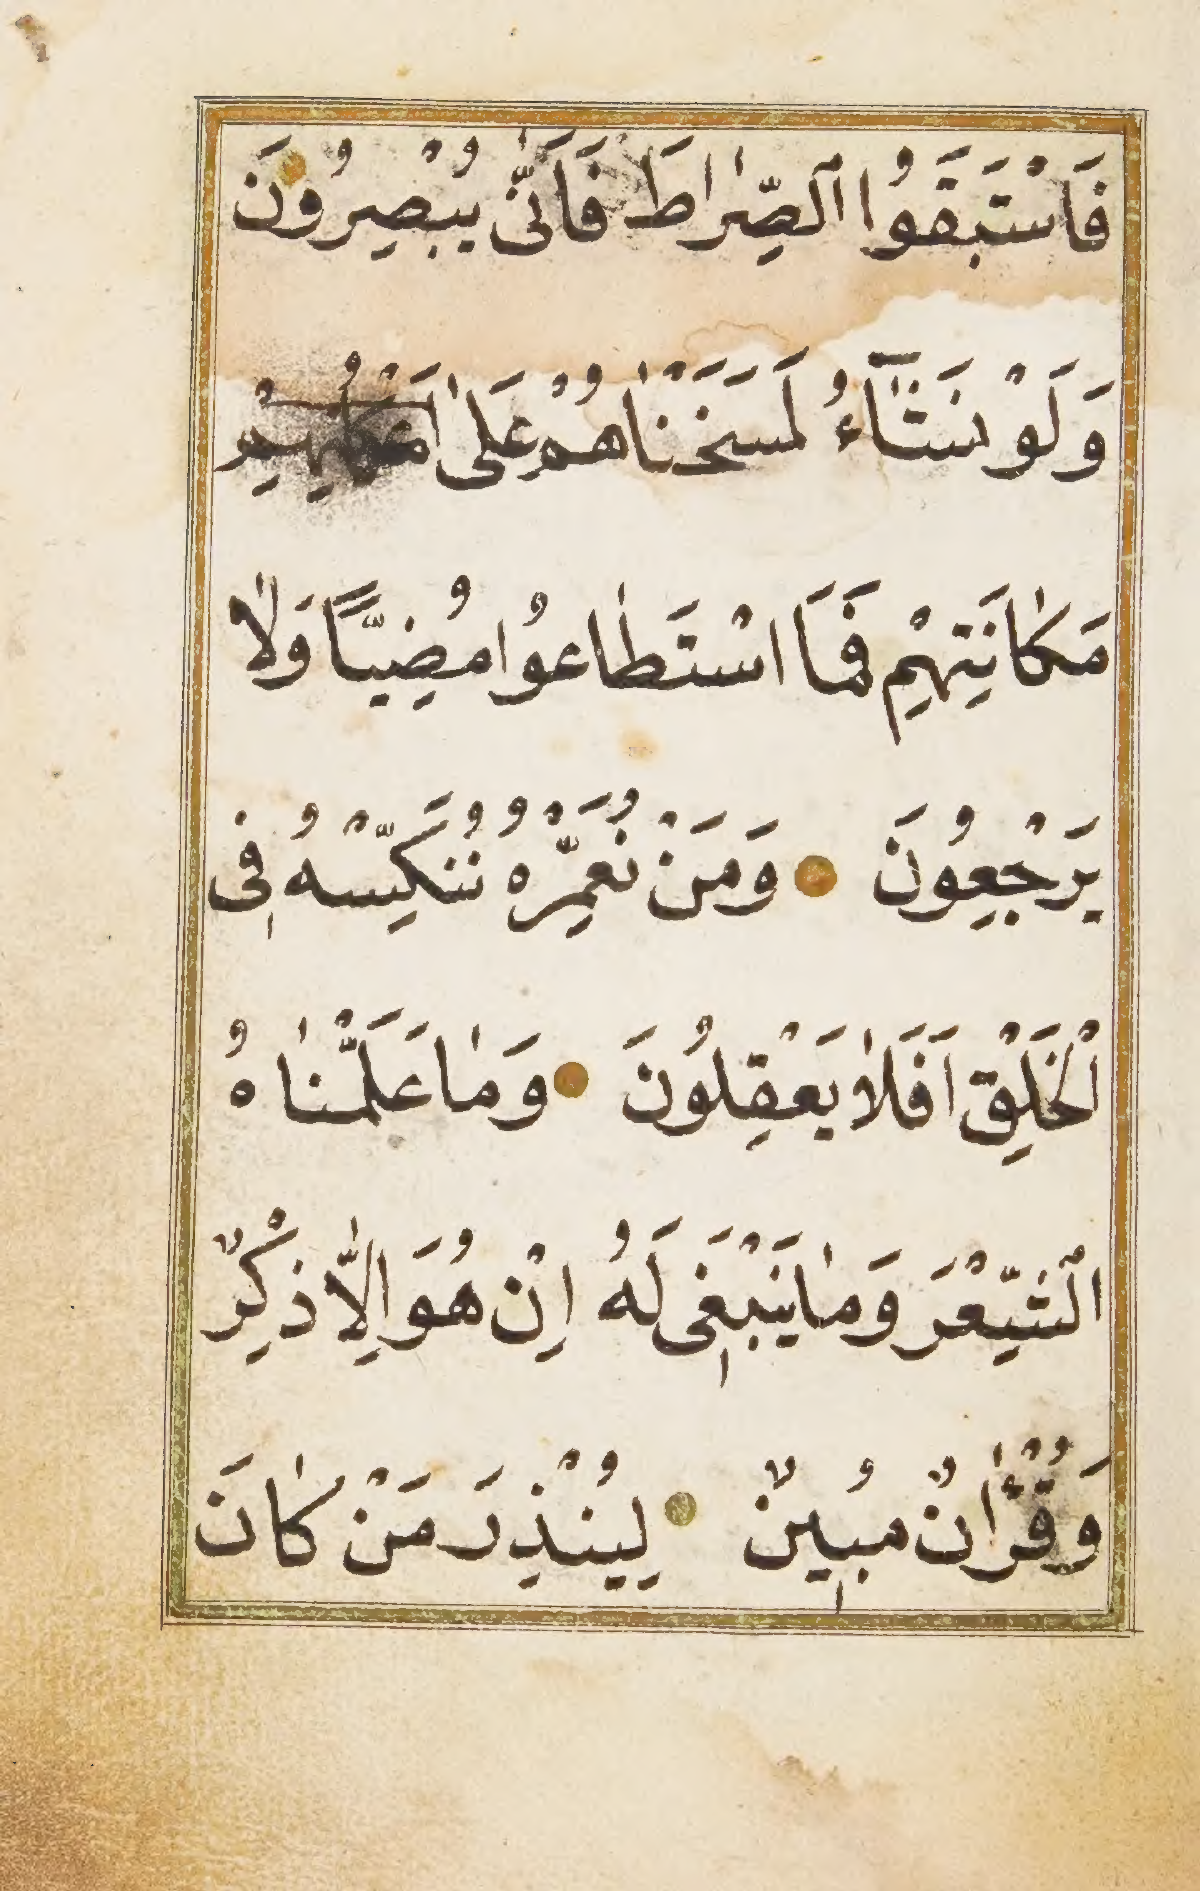 فَاسْتَبَقُوا الصِّرَاطَ فَاَنّٰى يُبْصِرُونَ
وَلَوْ نَشَٓاءُ لَمَسَخْنَاهُمْ عَلٰى
مَكَانَتِهِمْ فَمَا اسْتَطَاعُوا مُضِيًّا وَلَا
يَرْجِعُونَ وَمَنْ نُعَمِّرْهُ نُنَكِّسْهُ فِى
الْخَلْقِ اَفَلَا يَعْقِلُونَ وَمَا عَلَّمْنَاهُ
الشِّعْرَ وَمَا يَنْبَغِى لَهُ اِنْ هُوَ اِلَّا ذِكْرٌ
وَقُرْاٰنٌ مُبِينٌ لِيُنْذِرَ مَنْ كَانَ